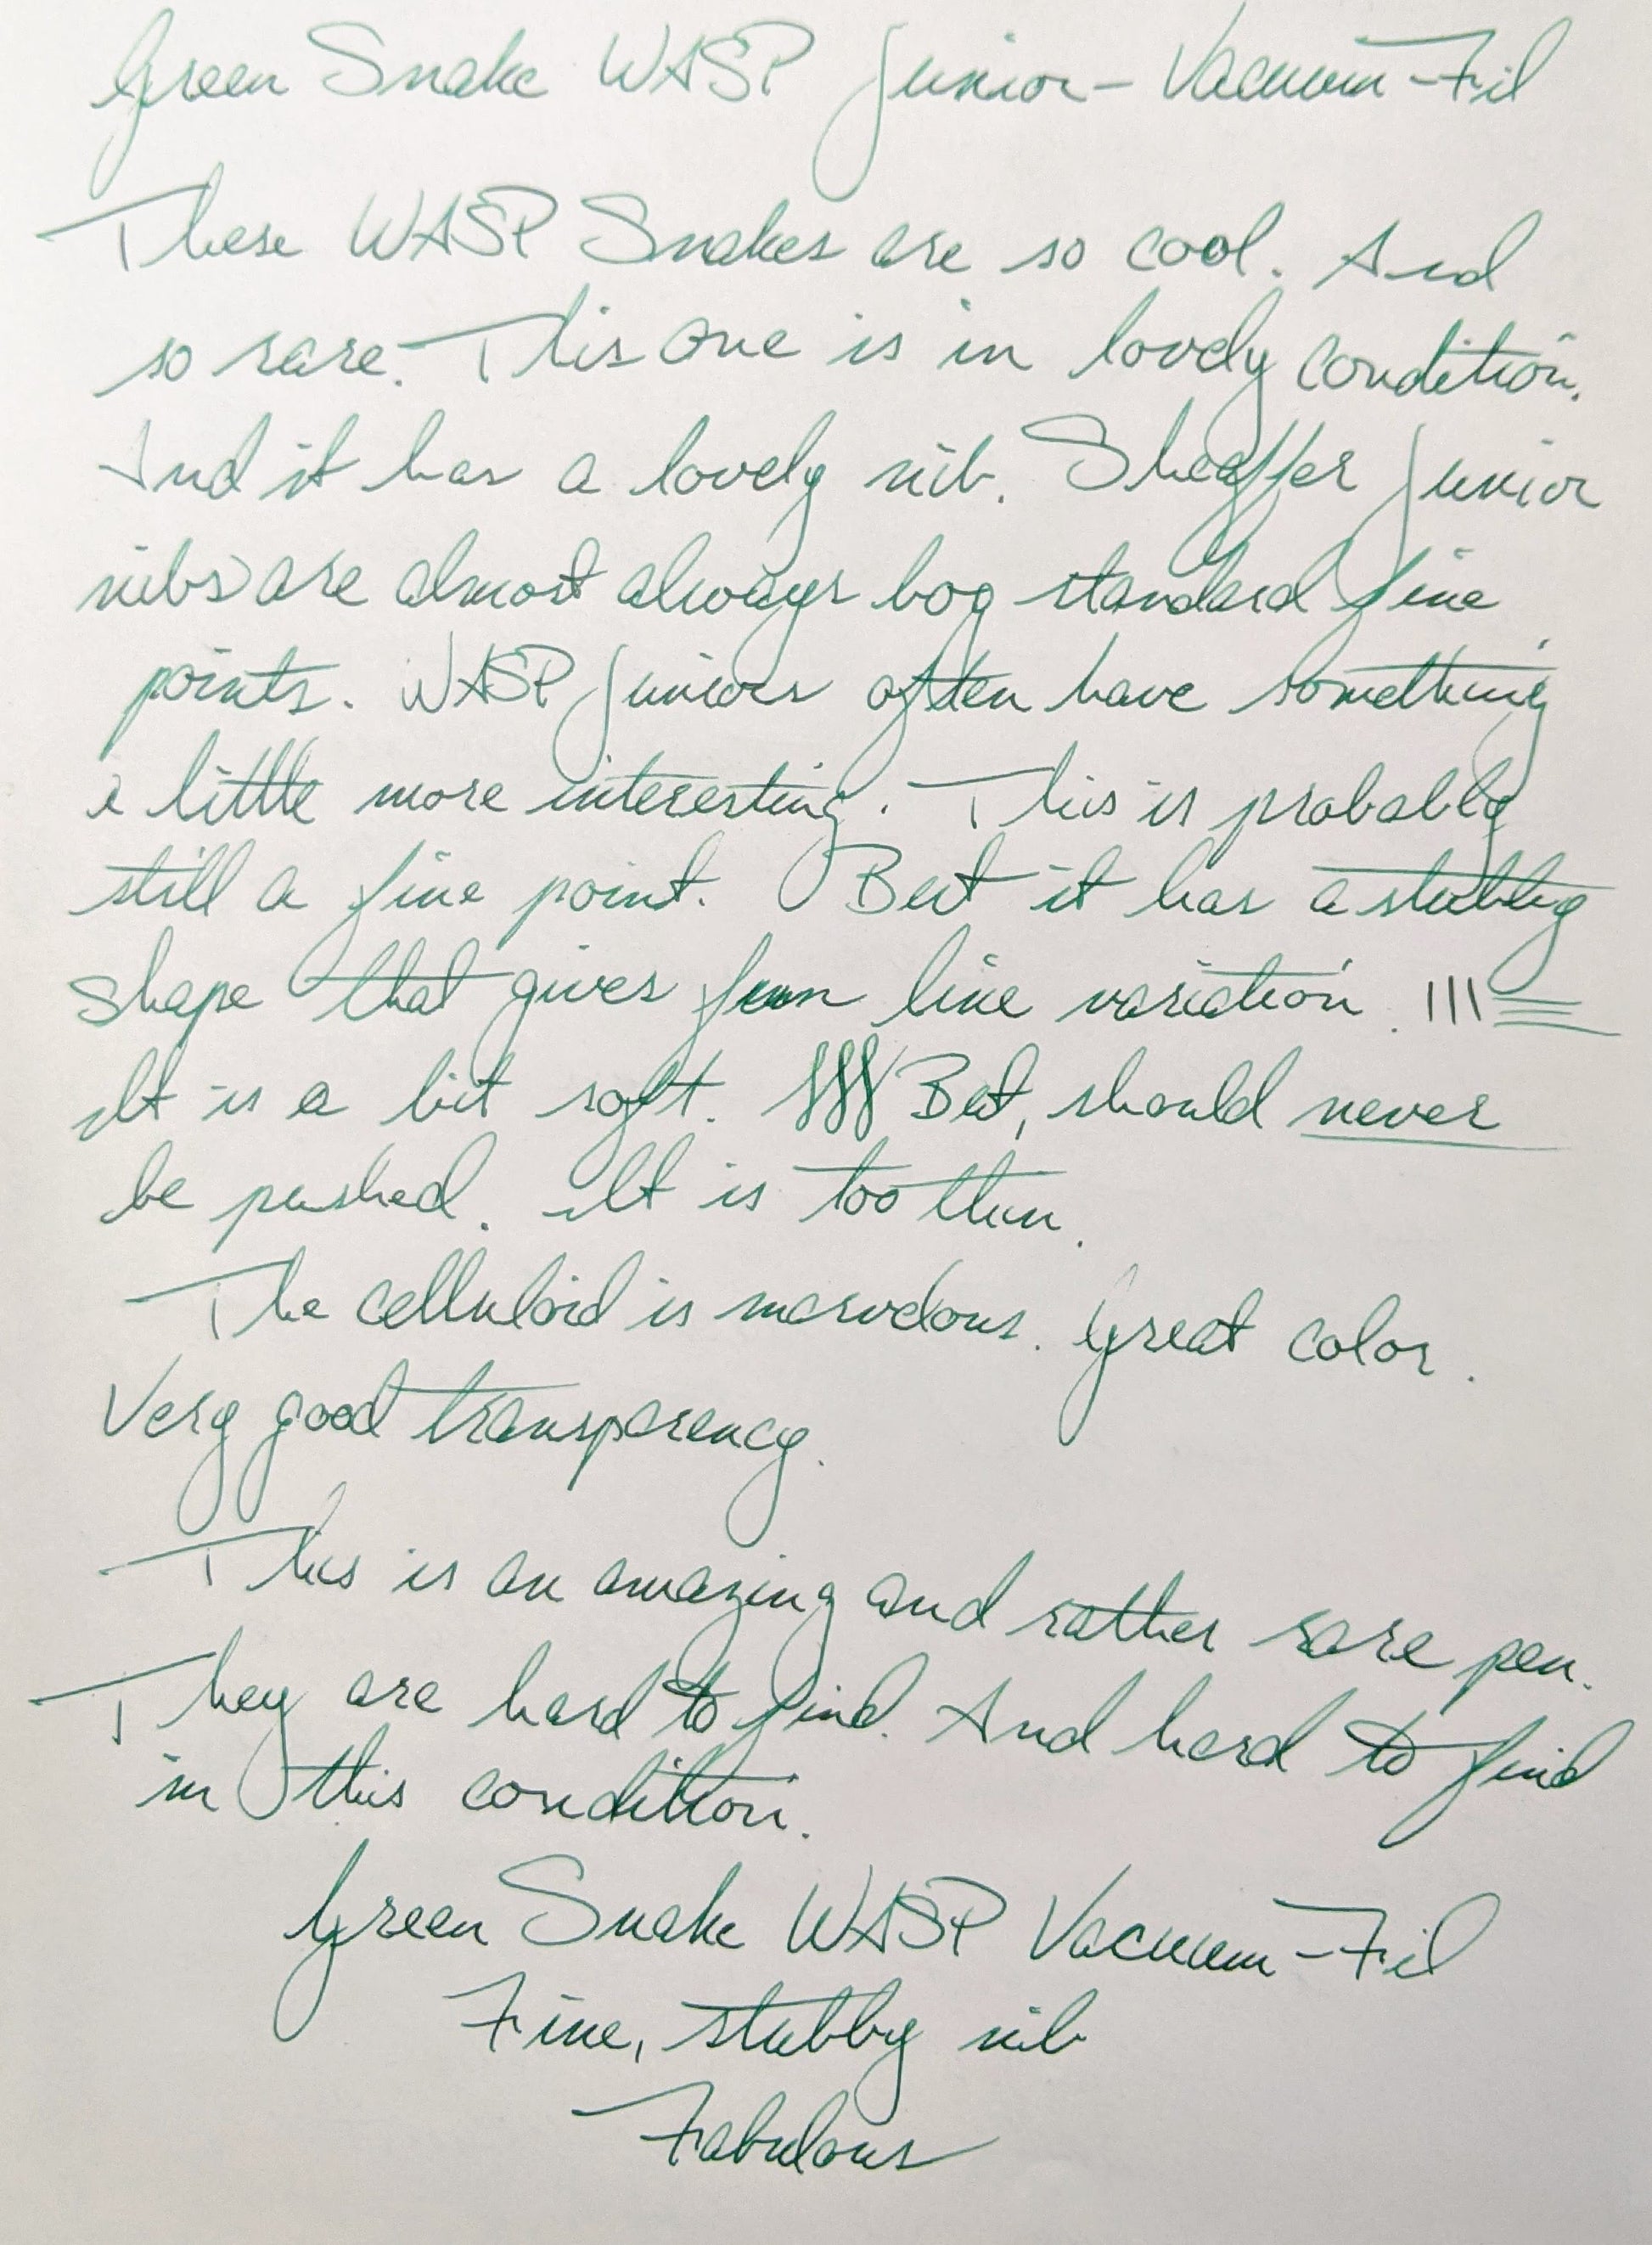 Green Snake WASP Junior - Vacuum-Fil
These WASP Snakes are so cool. And
so rare. This one is in lovely condition.
And it has a lovely nib. Sheaffer Junior
nibs are almost always bog standard fine
points. WASP Juniors often have something
a little more interesting. This is probably
still a fine point. But it has a stubby
shape that gives fun line variation.
It is a bit soft. But, should never
be pushed. It is too thin.
The celluloid is marvelous. Great color.
Very good transparency.
This is an amazing and rather rare pen.
They are hard to find. And hard to find
in this condition.
Green Snake WASP Vacuum-Fil
Fine, stubby nib
Fabulous